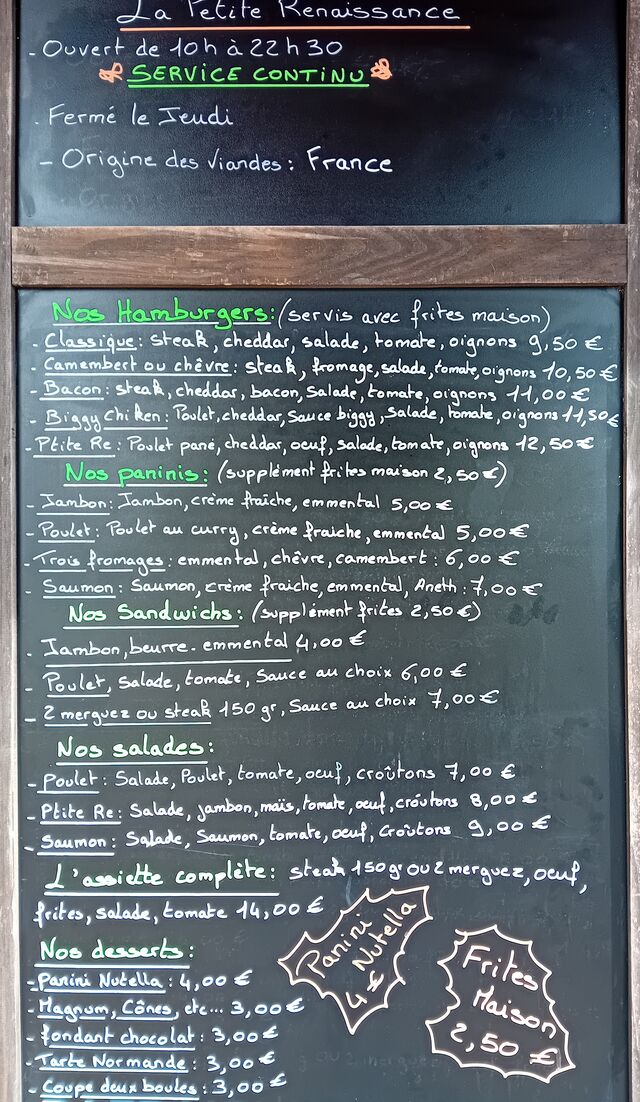 La Petite Renaissance
- Ouvert de 10h à 22h30
SERVICE CONTINU
. Fermé le Jeudi
- Origine des Viandes : France
Nos Hamburgers: (servis avec frites maison)
- Classique : steak, cheddar, salade, tomate, oignons 9,50 €
- Camembert ou chèvre : steak, fromage, salade, tomate, oignons 10,50 €
- Bacon : steak, cheddar, bacon, Salade, tomate, oignons 11,00 €
- Biggy Chiken : Poulet, cheddar, Sauce biggy, Salade, tomate, oignons 11,50€
- Ptite Re : Poulet pané, cheddar, oeuf, salade, tomate, oignons 12,50€
Nos paninis : (supplément frites maison 2,50€)
- Jambon : Jambon, crème fraîche, emmental 5,00€
- Poulet : Poulet au curry, crème fraiche, emmental 5,00€
- Trois fromages : emmental, chèvre, camembert : 6,00 €
- Saumon : Saumon, crème fraiche, emmental, Aneth : 7,00€
Nos Sandwichs : (supplément frites 2,50€)
- Jambon, beurre - emmental 4,00 €
- Poulet, salade, tomate, Sauce au choix 6,00 €
- 2 merguez ou steak 150 gr, Sauce au choix 7,00 €
Nos salades :
- Poulet : Salade, Poulet, tomate, oeuf, croûtons 7,00 €
- Ptite Re : Salade, jambon, maïs, tomate, oeuf, croûtons 8,00€
- Saumon : Salade, Saumon, tomate, oeuf, Croûtons 9,00 €
L'assiette complète : steak 150 gr ou 2 merguez, oeuf,
frites, salade, tomate 14,00 €
Nos desserts :
- Panini Nutella : 4,00 €
- Magnum, Cônes, etc... 3,00€
- fondant chocolat : 3,00€
- Tarte Normande : 3,00€
- Coupe deux boules : 3,00€
Panini
Nutella
4 €
Frites
Maison
2,50 €